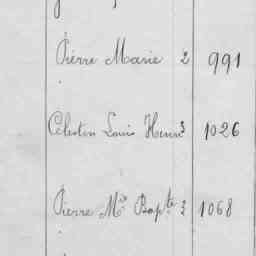 Pierre Marie 2 991
Célestin Louis Henri 3 1026
Pierre Mie Bapte 3 1068